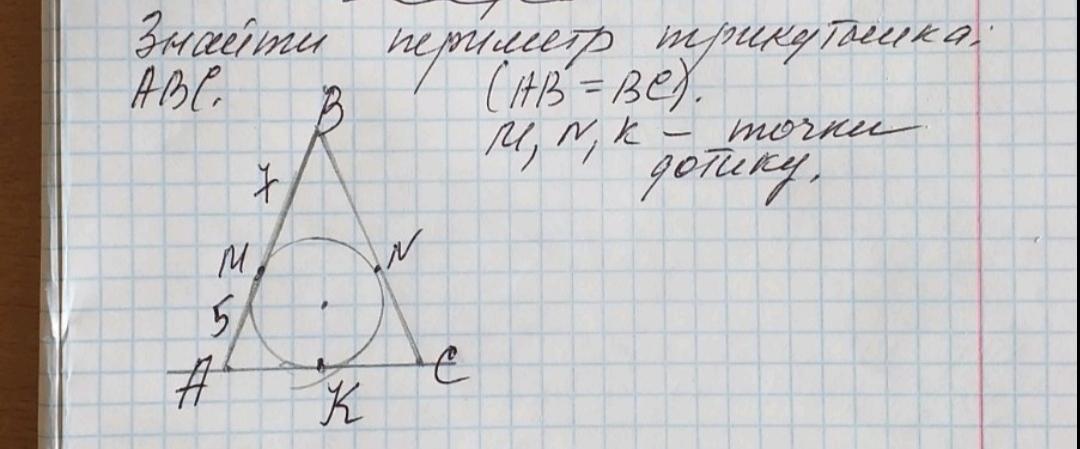 Знайти периметр трикутника
ABC. (AB = BC).
M, N, K – точки
дотику.
B
7
M N
5
A K C